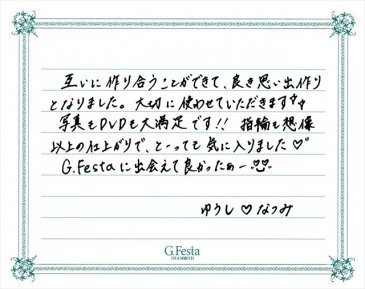 互いに作り合うことができて、良き思い出作り
となりました。大切に使わせていただきます♡♡
写真もDVDも大満足です!! 指輪も想像
以上の仕上がりで、と〜っても気に入りました♡
G.Festaに出会えて良かったぁー♡♡
ゆうし♡なつみ
G.Festa
DIAMOND